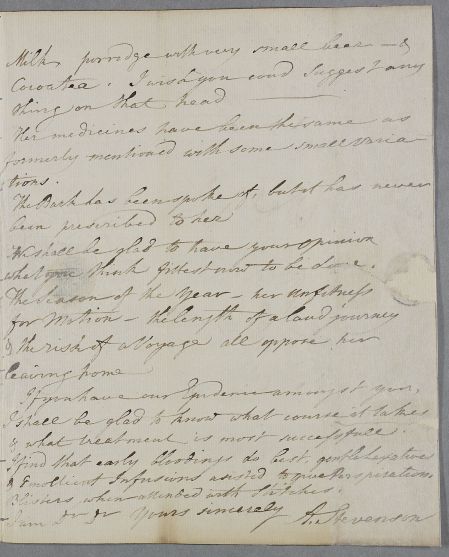 Milk porridge with very small beer — &
Cocoatea. I wish you coud suggest any
thing on that head
Her medicines have been the same as
formerly mentioned with some small varia-
tions.
The Bark has been spoke of, but it has never
been prescribed to her
We shall be glad to have your opinion
what you think fittest now to be done.
The Season of the Year - her unfitness
for Motion - the length of a Land journey
& the risk of a Voyage all oppose her
leaving home
If you have our Epidemic amongst you,
I shall be glad to know what course it takes
& what treatment is most successfull.
I find that early bleedings do best, gentle Laxatives
& Emollient Infusions assisted to give Perspiration.
Blisters when attended with Stitches.
I am Dr Sr Yours sincerely A. Stevenson